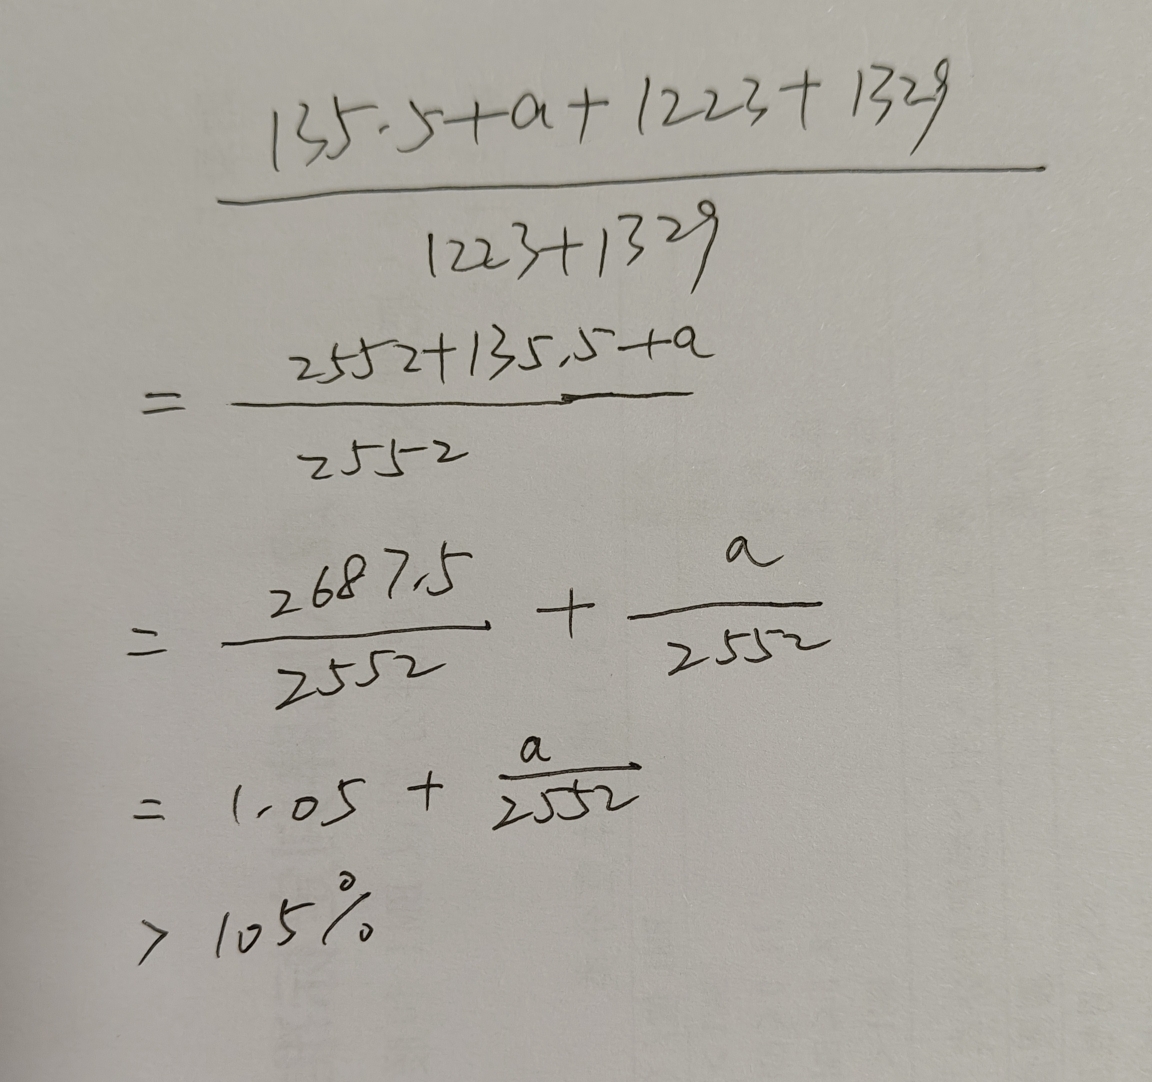 135.5+a+1223+1329
1223+1329
2552+135.5+a
=
2552
2687.5 + a
=
2552 2552
= 1.05 + a
2552
> 105%